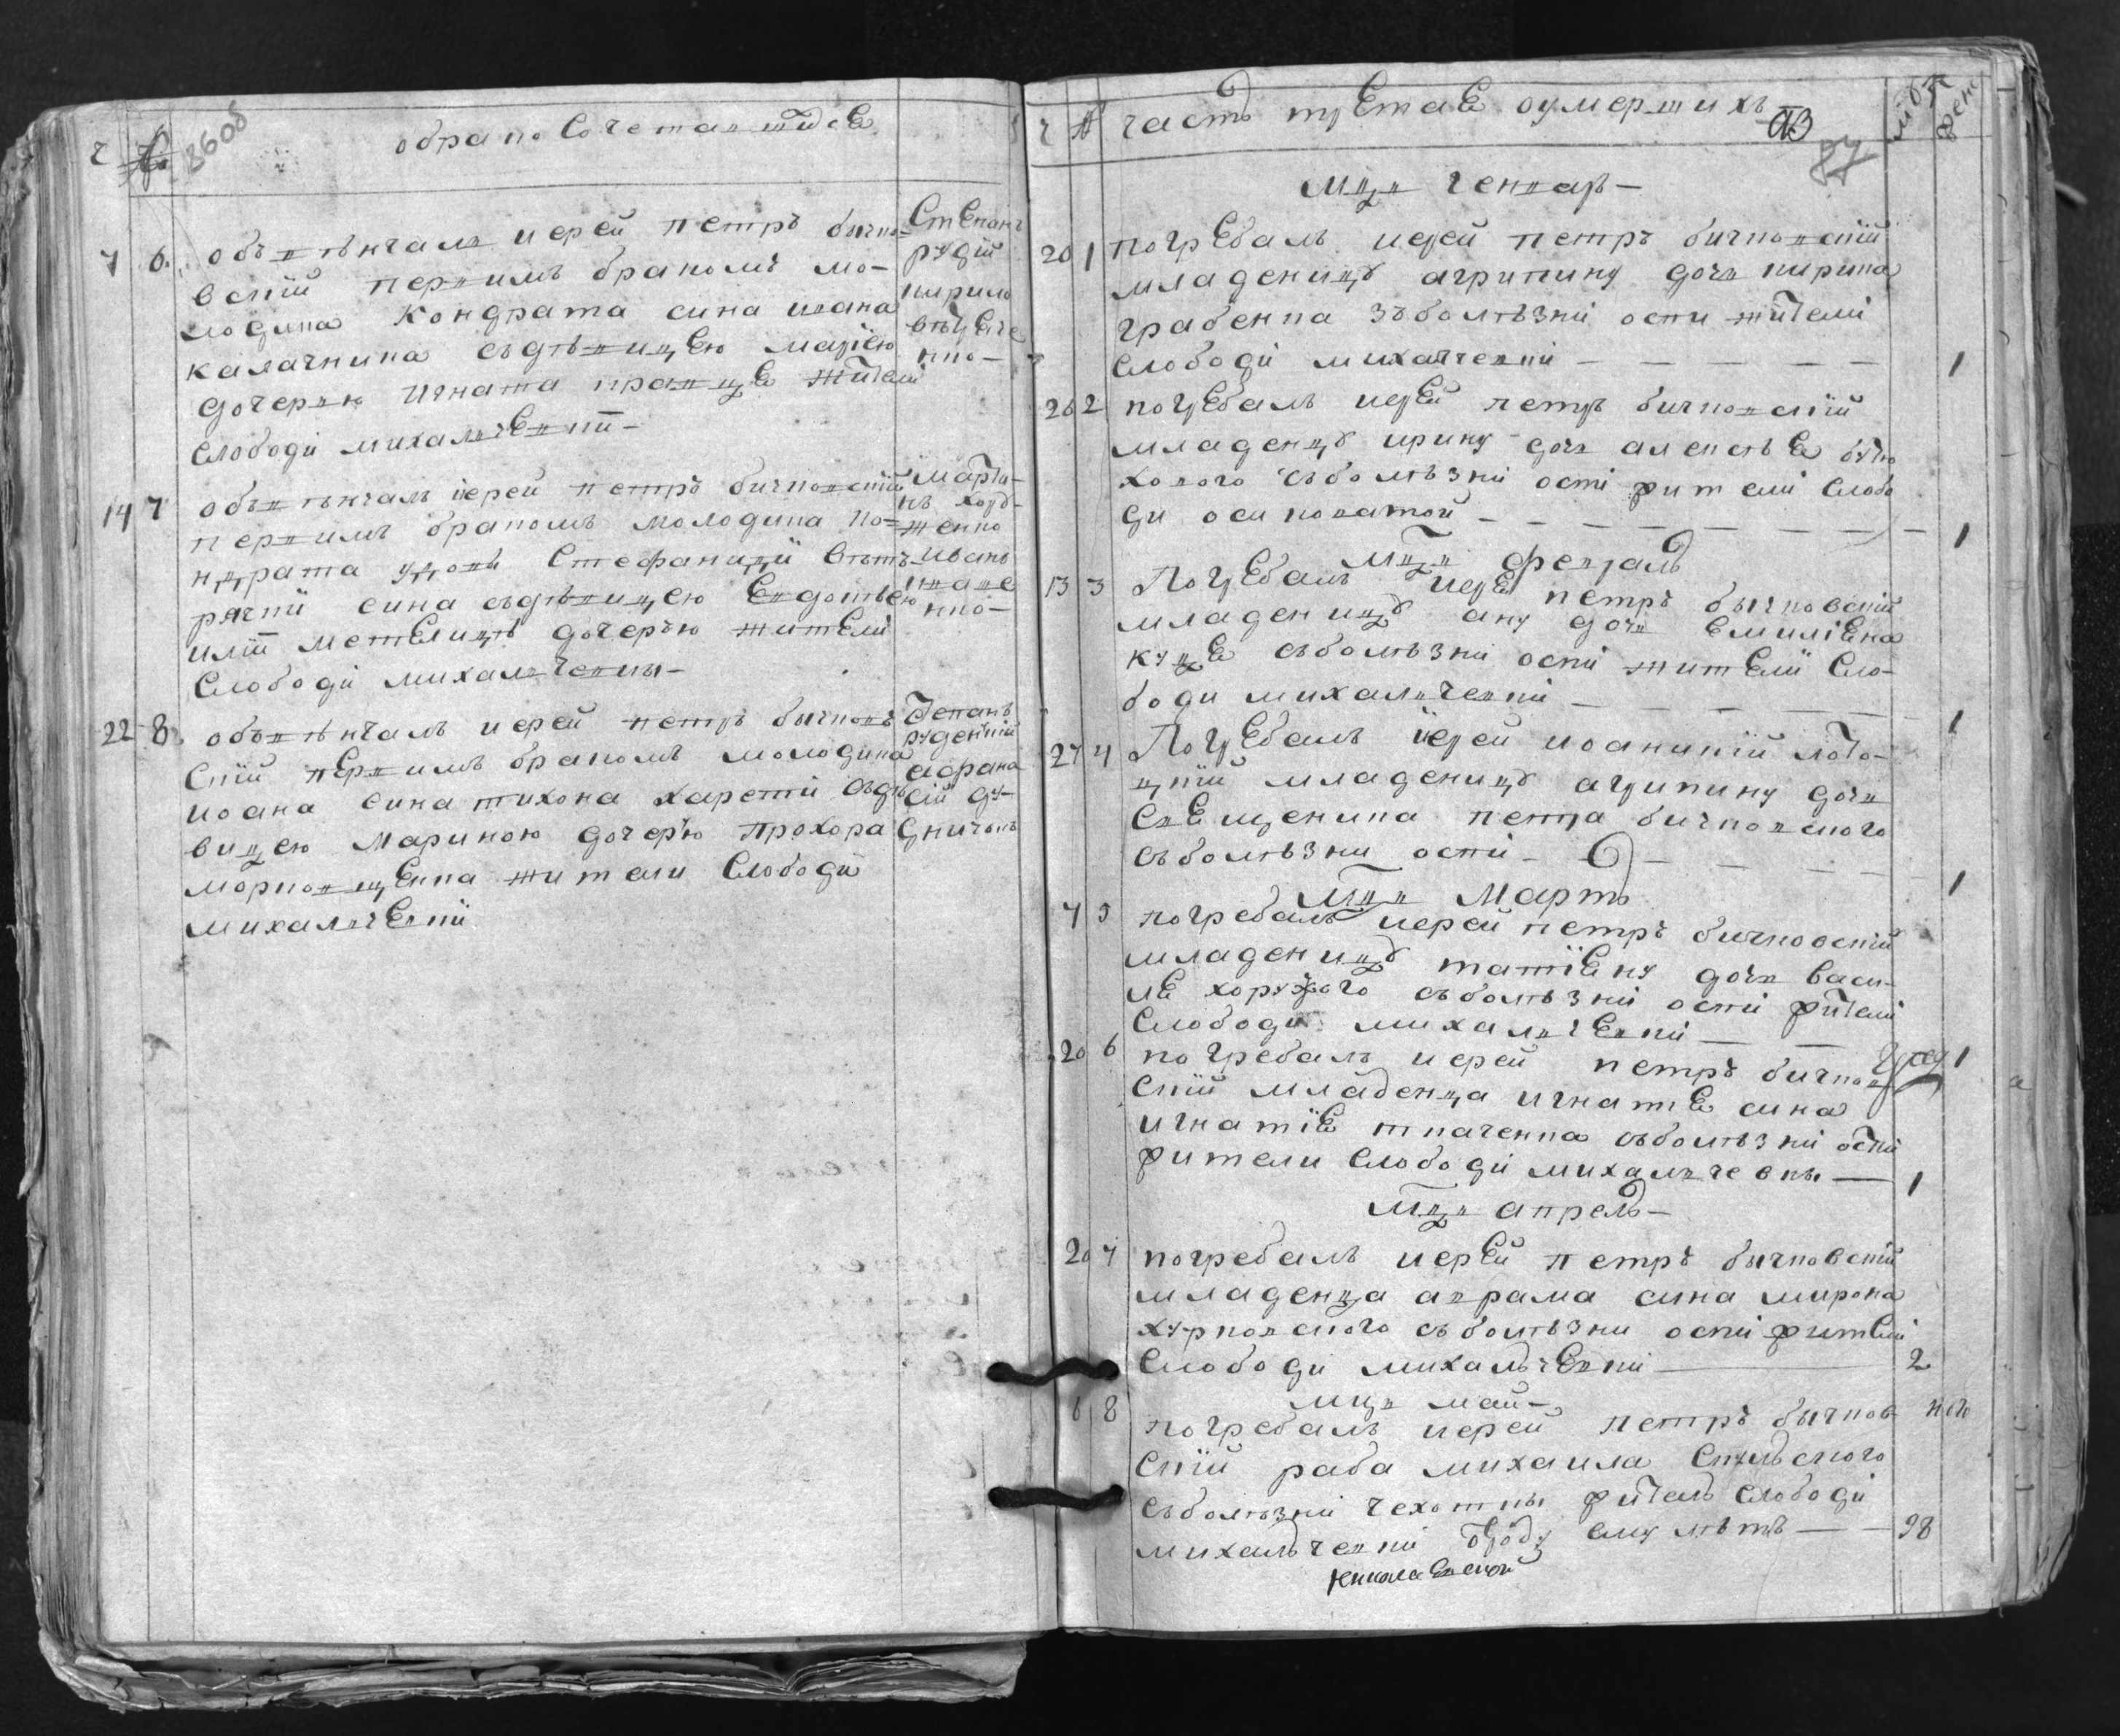 ч № 86об
о бракосочетавшихся
7 6. обвѣнчалъ иерей петръ бичко-
вский первимъ бракомъ мо-
лодика кондрата сина ивана
калачника съдѣвицею мариею
дочервю игната кравця жителі
слободи михалвчевкі-
Степанъ
рудій
кирило
кко-
14 7 обвѣнчалъ иерей петръ бичковский
первимъ бракомъ молодика ко=
ндрата удови стефаниди вѣтъ-
рячки сина съдѣвицею евдотьею
илії метелицѣ дочерью жители
слободи михалвчевки-
марти-
нъ хор-
женко
иванъ
кко-
22 8. обвѣнчалъ иерей петръ бичковъ
ский первимъ бракомъ молодика
иоана сина тихона харети съдѣ
вицею мариною дочерю прохора
морковценка жители слободи
михалвчевки
степанъ
руденкій
афана
сій ду-
дничокъ
ч № часть третая оумершихъ
87
мцв генваръ-
20 1 погребалъ иерей петръ бичковский
младеницу агрипину дочв кирика
грабенка зъболѣзні оспи жителі
слободі михалчевкі - - - - 1
26 2 погребалъ иерей петръ бичковский
младенцу ирину дочв алексѣя бучо
хового съболѣзні оспі жителі слобо
ди осиковатой - - - - 1
мцв февралъ
13 3 Погребалъ иерей петръ бычковский
младеницу ану дочв емилияна
куця съболѣзні оспі жителі сло-
боди михалвчевкі - - - - 1
27 4 Погребалъ иерей иоаникий лото-
цкий младеницу агрипину дочв
свещеника петра бичковского
съболѣзни оспі - - - 1
мцв мартъ
7 5 погребалъ иерей петръ бичковский
младеницу татияну дочв васи-
ля хоружого съболѣзні оспі жителі
слободи михалвчевкі - - 1
20 6 погребалъ иерей петръ бичков
ский младенца игнатя сина
игнатія ткаченка съболѣзні оспі
жители слободі михалвчевкы - 1
мцв апрель-
20 7 погребалъ иерей петръ бычковский
младенца аврама сина мирона
хурковского съболѣзни оспі жителі
слободи михальчевкі - 2
мцв май-
6 8 погребалъ иерей петръ бычков
ский раба михаила
съболѣзні чехотки житель слободі
михальчевкі ему лѣтъ - - 98